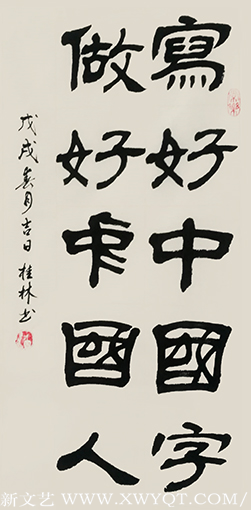 寫好中國字
做好中國人
戊戌春月吉日 桂林书
新文艺/WWW.XWYQT.COM/